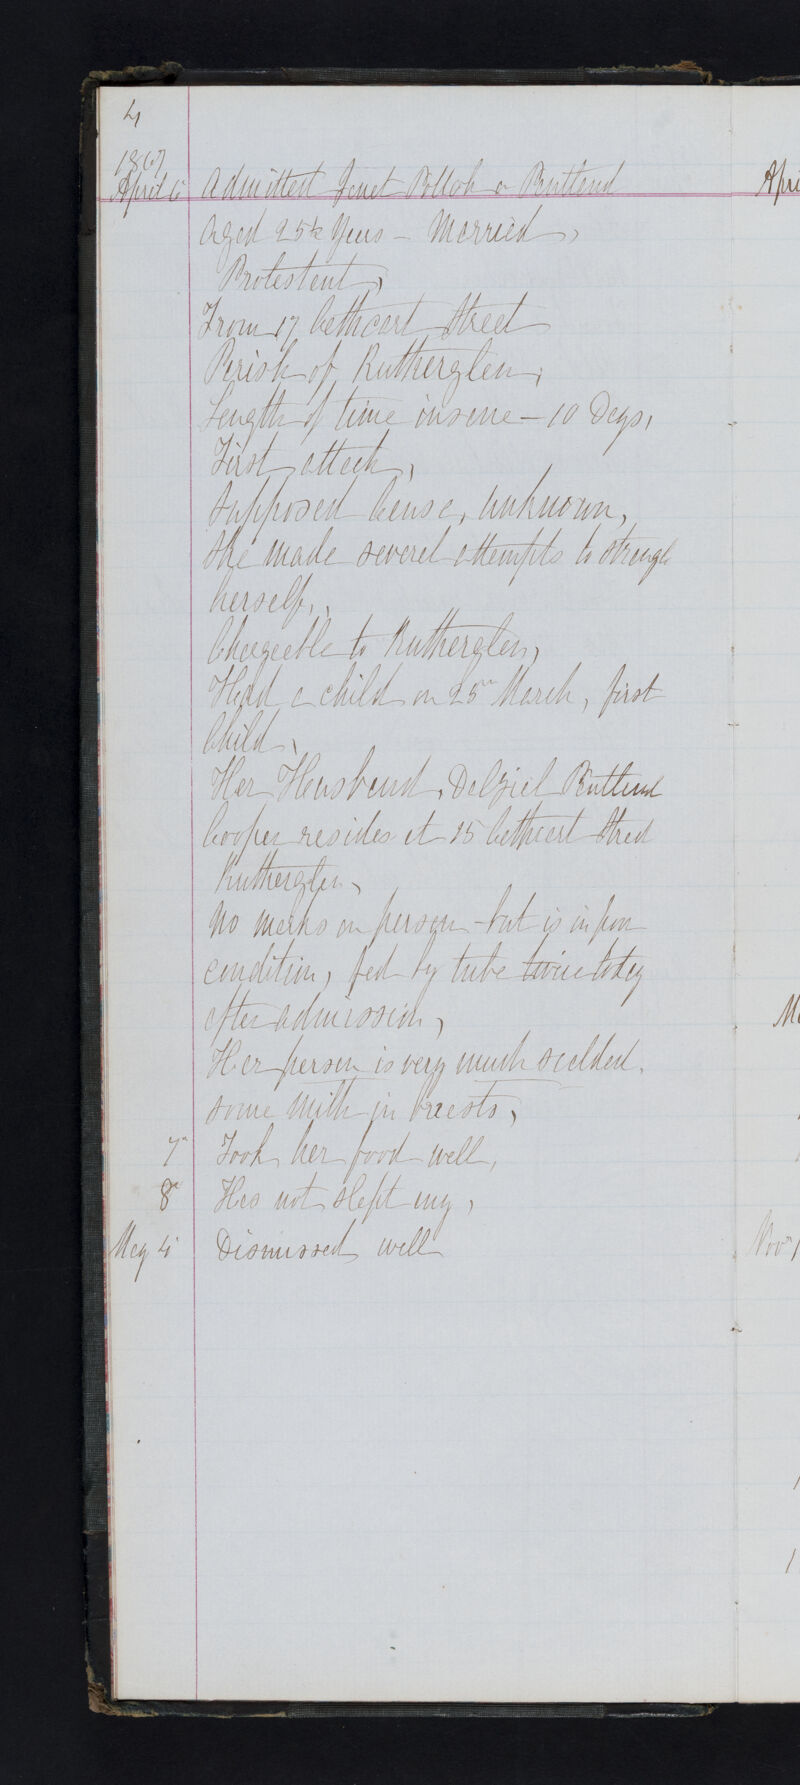 4
1867
April 6 Admitted Janet Pollok or Pentland
Aged 25½ Years – Married,
Protestant,
From 17 Cathcart Street
Parish of Rutherglen,
Length of time insane – 10 Days,
First attack,
Supposed Cause, Unknown,
She made several attempts to strangle
herself,
Chargeable to Rutherglen,
Had a child on 25th March, first
Child,
Her Husband, Dalziel Pentland
Cooper resides at 25 Cathcart Street
Rutherglen,
No marks on person – but is in poor
condition, fed by tube twice today
after admission,
Her person is very much scalded,
some milk in breasts,
7" Took her food well,
8" Has not slept any,
May 4 Dismissed well
Apri
Ma
Nov